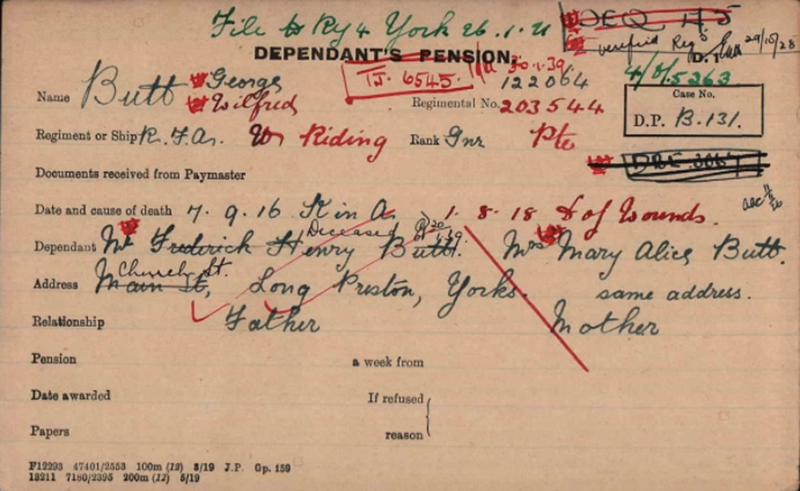 File to Ry 4 York 26.1.21
DEPENDANT'S PENSION.
verified Regs 29/10/28
D.1
TJ. 6545. 30.1.39
4/D/5263
Name Butt George
Wilfred
122064
Regimental No. 203544
Case No.
D.P. B.131.
Regiment or Ship R.F.A. W Riding Rank Gnr Pte
Documents received from Paymaster
Date and cause of death 7.9.16 K in A. 1.8.18 D of Wounds.
Deceased
Dependant Mr Frederick Henry Butt. Mrs Mary Alice Butt.
Church St.
Address Main St, Long Preston, Yorks. same address.
Relationship Father Mother
Pension a week from
Date awarded If refused
Papers reason
F12293 47401/2553 100m (12) 3/19 J.P. Gp. 159
13211 7180/2395 200m (12) 5/19